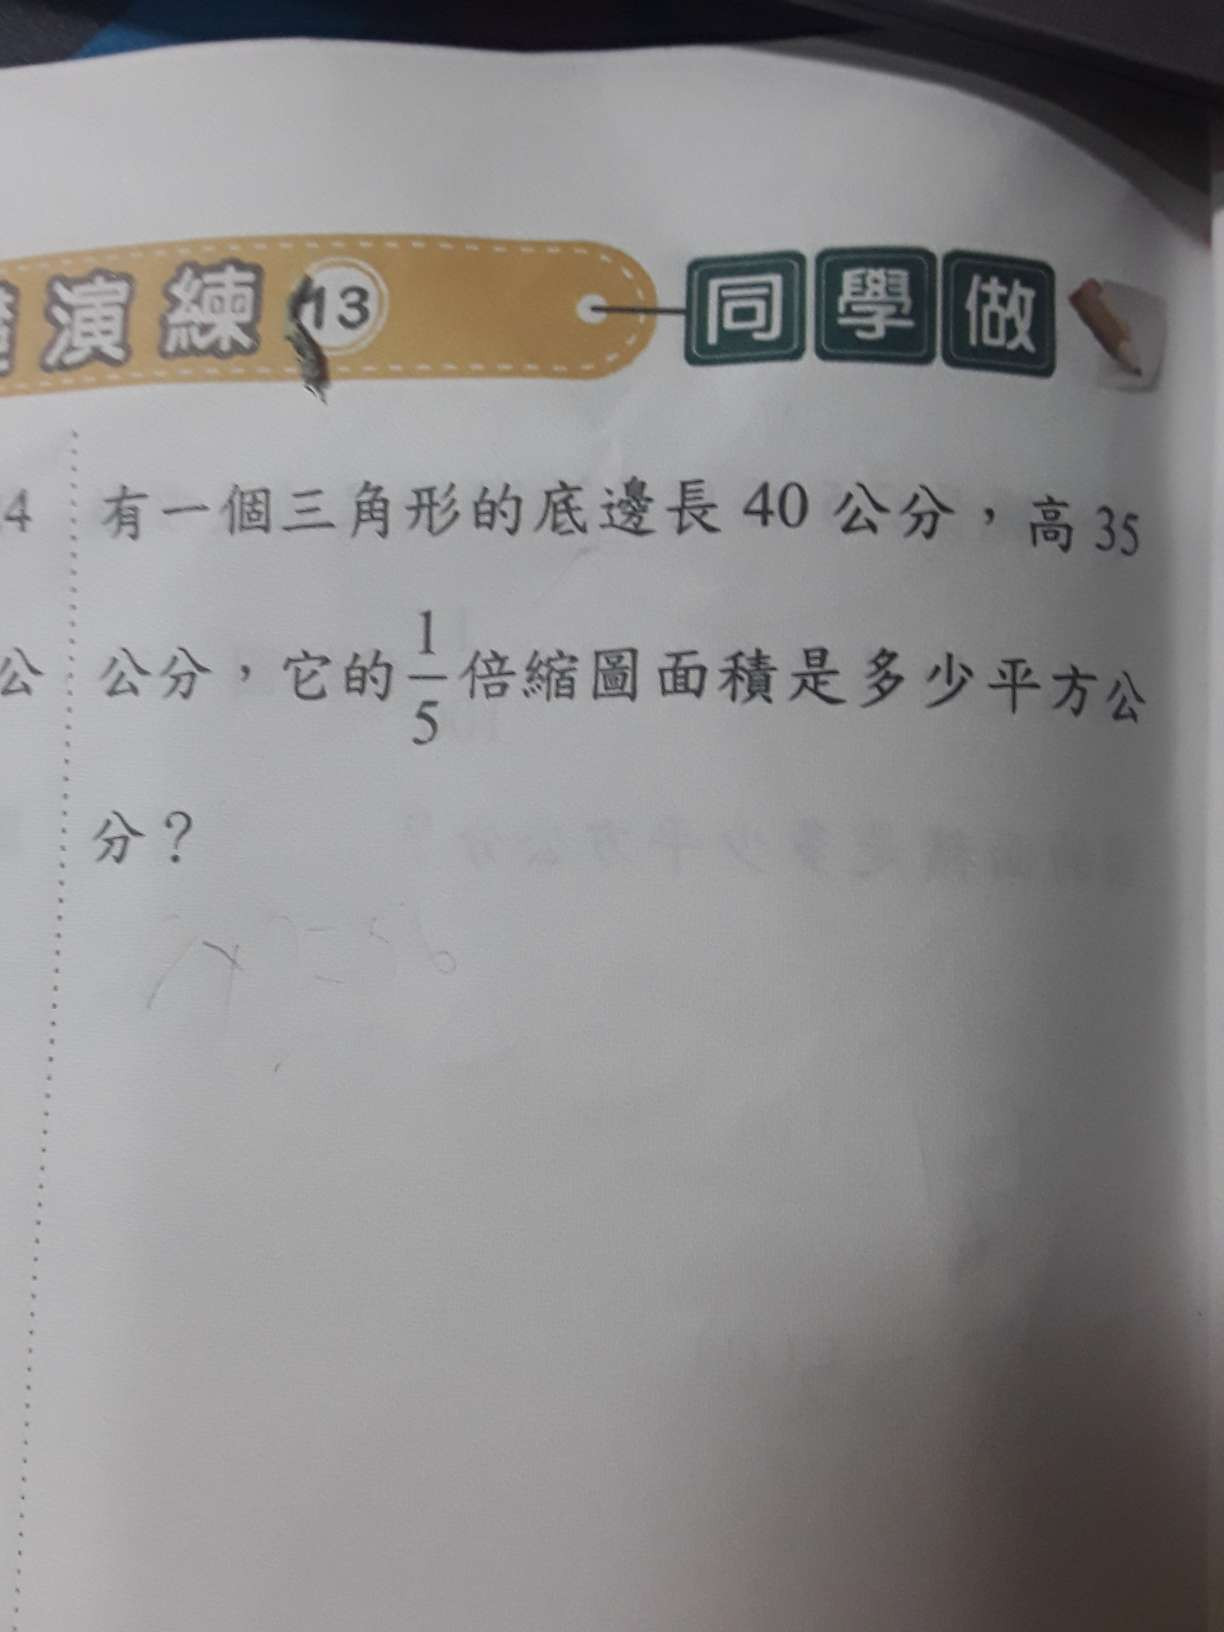 演練 13 同學做
4 有一個三角形的底邊長 40 公分，高 35
公 公分，它的 1/5 倍縮圖面積是多少平方公
分？